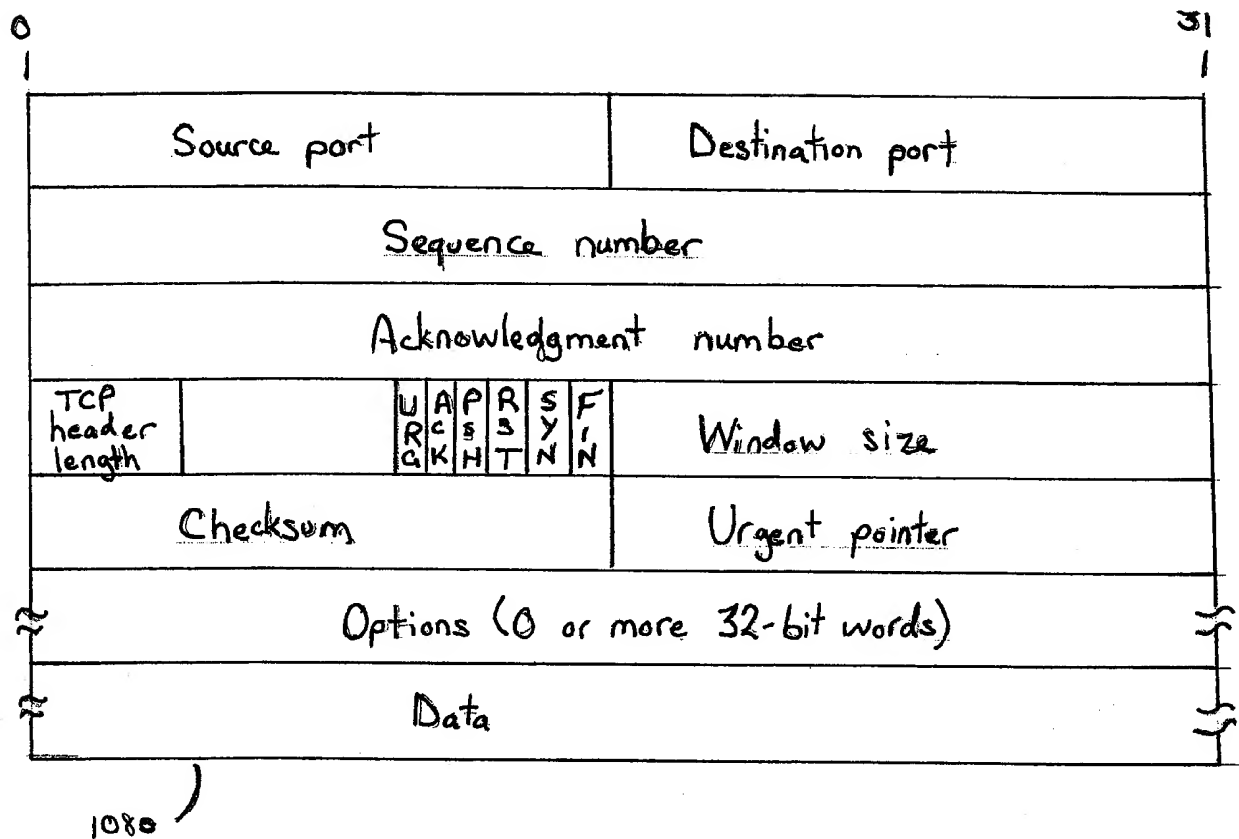 0 31
Source port Destination port
Sequence number
Acknowledgment number
TCP header length URG ACK PSH RST SYN FIN Window size
Checksum Urgent pointer
Options (0 or more 32-bit words)
Data
1080